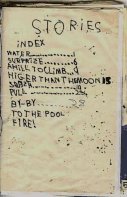 STORIES
INDEX
WATER..........1
SURPRIZE.......6
A HILL TO CLIMB..9
HIGER THAN THE MOON 13
PULL
BY-BY.......28
TO THE POOL
FIRE!